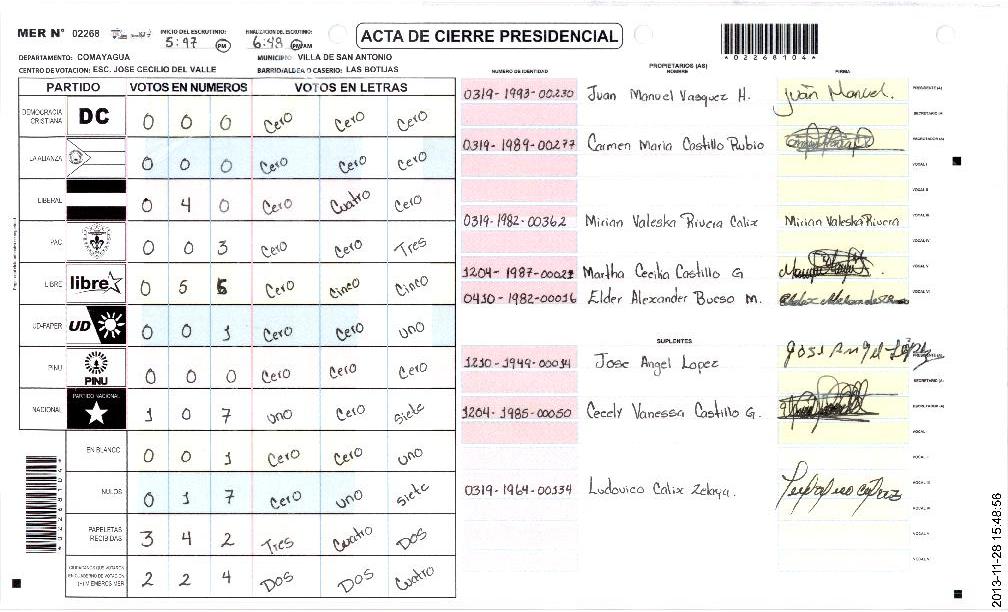 MER N° 02268
INICIO DEL ESCRUTINIO: 5:47 PM
FINALIZACION DEL ESCRUTINIO: 6:48 PM/AM
ACTA DE CIERRE PRESIDENCIAL
*02268104*
DEPARTAMENTO: COMAYAGUA
MUNICIPIO: VILLA DE SAN ANTONIO
CENTRO DE VOTACION: ESC. JOSE CECILIO DEL VALLE
BARRIO/ALDEA O CASERIO: LAS BOTIJAS
PARTIDO VOTOS EN NUMEROS VOTOS EN LETRAS
DEMOCRACIA CRISTIANA DC 0 0 0 Cero Cero Cero
LA ALIANZA 0 0 0 Cero Cero Cero
LIBERAL 0 4 0 Cero Cuatro Cero
PAC 0 0 3 Cero Cero Tres
LIBRE libre 0 5 5 Cero Cinco Cinco
UD-FAPER UD 0 0 1 Cero Cero uno
PINU PINU 0 0 0 Cero Cero Cero
NACIONAL PARTIDO NACIONAL 1 0 7 uno Cero Siete
EN BLANCO 0 0 1 Cero Cero uno
NULOS 0 1 7 Cero uno Siete
PAPELETAS RECIBIDAS 3 4 2 Tres Cuatro DOS
CIUDADANOS QUE VOTARON EN CUADERNO DE VOTACION (+) MIEMBROS MER 2 2 4 DOS DOS Cuatro
PROPIETARIOS (AS)
NUMERO DE IDENTIDAD NOMBRE FIRMA
0319-1993-00230 Juan Manuel Vasquez H. Juan Manuel. PRESIDENTE (A)
SECRETARIO (A)
0319-1989-00277 Carmen Maria Castillo Rubio ESCRUTADOR (A)
VOCAL I
VOCAL II
0319-1982-00362 Mirian Valeska Rivera Calix Mirian Valeska Rivera VOCAL III
VOCAL IV
1204-1987-00021 Martha Cecilia Castillo G VOCAL V
0410-1982-00016 Elder Alexander Bueso M. VOCAL VI
SUPLENTES
1210-1949-00014 Jose Angel Lopez Jose Angel López PRESIDENTE (A)
SECRETARIO (A)
1204-1985-00050 Cecely Vanessa Castillo G. ESCRUTADOR (A)
VOCAL I
VOCAL II
0319-1964-00134 Ludovico Calix Zelaya. VOCAL III
VOCAL IV
VOCAL V
VOCAL VI
2013-11-28 15:48:56